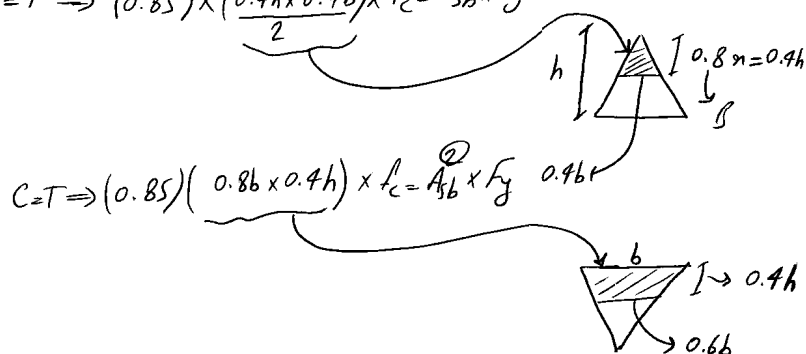 =T ⇒ (0.85) × (0.4h×0.4b / 2) × fc =
h
0.8x=0.4h
β
C=T ⇒ (0.85)( 0.8b × 0.4h) × fc = Asb② × Fy
0.4b
b
0.4h
0.6b